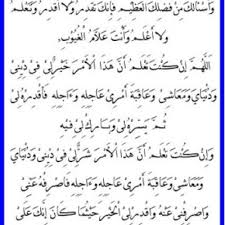 وَأَسْأَلُكَ مِنْ فَضْلِكَ الْعَظِيْمِ فَإِنَّكَ تَقْدِرُ وَلَا أَقْدِرُ وَتَعْلَمُ
وَلَا أَعْلَمُ وَأَنْتَ عَلَّامُ الْغُيُوْبِ
اَللّٰهُمَّ إِنْ كُنْتَ تَعْلَمُ أَنَّ هَذَا الْأَمْرَ خَيْرٌ لِيْ فِيْ دِيْنِيْ
وَدُنْيَايَ وَمَعَاشِيْ وَعَاقِبَةِ أَمْرِيْ عَاجِلِهِ وَءَاجِلِهِ فَاقْدِرْهُ لِيْ
ثُمَّ يَسِّرْهُ لِيْ وَبَارِكْ لِيْ فِيْهِ
وَإِنْ كُنْتَ تَعْلَمُ أَنَّ هَذَا الْأَمْرَ شَرٌّ لِيْ فِيْ دِيْنِيْ وَدُنْيَايَ
وَمَعَاشِيْ وَعَاقِبَةِ أَمْرِيْ عَاجِلِهِ وَءَاجِلِهِ فَاصْرِفْهُ عَنِّيْ
وَاصْرِفْنِيْ عَنْهُ وَاقْدِرْ لِيَ الْخَيْرَ حَيْثُمَا كَانَ إِنَّكَ عَلَىٰ